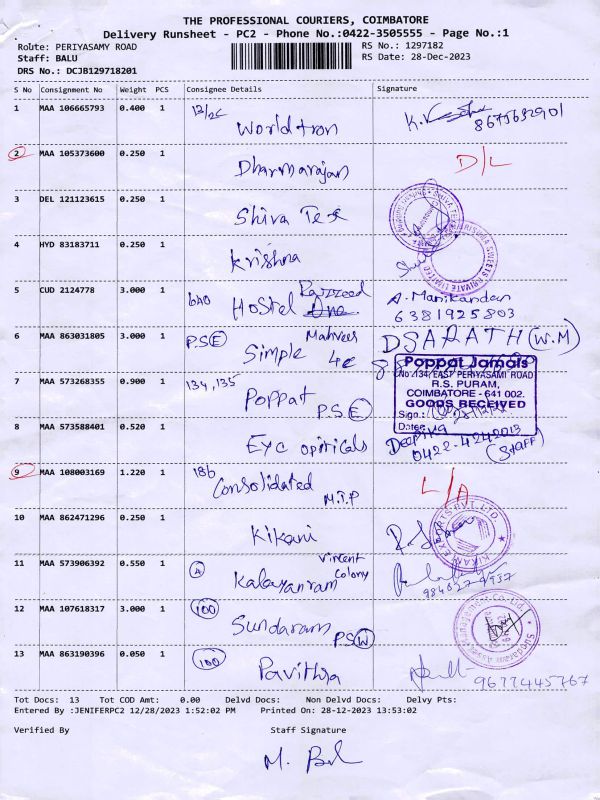 THE PROFESSIONAL COURIERS, COIMBATORE
Delivery Runsheet - PC2 - Phone No.:0422-3505555 - Page No.:1
Route: PERIYASAMY ROAD
Staff: BALU
DRS No.: DCJB129718201
RS No.: 1297182
RS Date: 28-Dec-2023
S No Consignment No Weight PCS Consignee Details Signature
1 MAA 106665793 0.400 1 Worldtron 8675632901
2 MAA 105373600 0.250 1 Dharmarajan D/L
3 DEL 121123615 0.250 1 Shiva Tex
4 HYD 83183711 0.250 1 Krishna
KRISHNA SWEETS PRIVATE LIMITED
5 CUD 2124778 3.000 1 Hostel A. Manikandan
6381925803
6 MAA 863031805 3.000 1 P.S(E) Simple DSARATH (W.M)
7 MAA 573268355 0.900 1 134, 135 Poppat P.S(E)
Poppat Jamals
No.134, EAST PERIYASAMI ROAD
R.S. PURAM,
COIMBATORE - 641 002.
GOODS RECEIVED
Sign.:
Date:
8 MAA 573588401 0.520 1 Eye opticals Deepika
0422-4242013
(STAFF)
9 MAA 108003169 1.220 1 186 Consolidated M.T.P L/A
10 MAA 862471296 0.250 1 Kikani
KIKANI EXPORTS PVT. LTD.
11 MAA 573906392 0.550 1 A Kalayanram Vincent Colony
12 MAA 107618317 3.000 1 100 Sundaram P.S(W)
13 MAA 863190396 0.050 1 100 Pavithra 9677445767
Tot Docs: 13 Tot COD Amt: 0.00 Delvd Docs: Non Delvd Docs: Delvy Pts:
Entered By :JENIFERPC2 12/28/2023 1:52:02 PM Printed On: 28-12-2023 13:53:02
Verified By Staff Signature